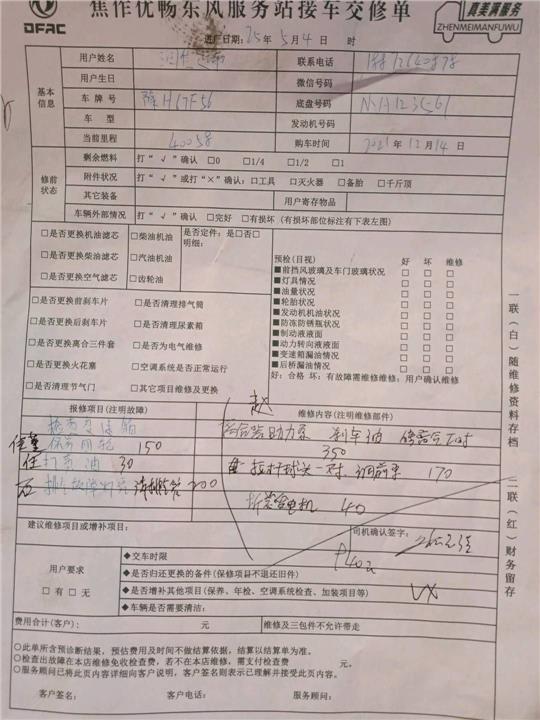 焦作优畅东风服务站接车交修单
DFAC
真美满服务
ZHENMEIMANFUWU
进厂日期：25年5月4日 时
基本信息
用户姓名
联系电话
用户生日
微信号码
车牌号 豫H67F56
底盘号码
车型
发动机号码
当前里程
购车时间 2021年12月14日
修前状态
剩余燃料 打“√”确认 □0 □1/4 □1/2 □1
附件状况 打“√”或打“×”确认：□工具 □灭火器 □备胎 □千斤顶
其它装备
用户寄存物品
车辆外部情况 打“√”确认 □完好 □有损坏（有损坏部位标注有下表左图）
□是否更换机油滤芯 □柴油机油 是否定件：是□否□
明细：
□是否更换柴油滤芯 □汽油机油
□是否更换空气滤芯 □齿轮油
预检(目视) 好 坏 维修
■前挡风玻璃及车门玻璃状况 □ □ □
■灯具情况 □ □ □
■油量状况 □ □ □
■轮胎状况 □ □ □
■发动机机油状况 □ □ □
■防冻防锈瓶状况 □ □ □
■制动液液面 □ □ □
■动力转向液液面 □ □ □
■变速箱漏油情况 □ □ □
■后桥漏油情况 □ □ □
好：合格 坏：有故障需维修维修：用户确认维修
□是否更换前刹车片 □是否清理排气筒
□是否更换后刹车片 □是否清理尿素箱
□是否更换离合三件套 □是否为电气维修
□是否更换火花塞 □空调系统是否正常运行
□是否清理节气门 □其它项目维修及更换
报修项目(注明故障)
赵
维修内容(注明维修部件)
离合器助力泵 刹车油
350
保养四轮 150
打黄油 30
直拉杆球头一对 170
200
40
建议维修项目或增补项目：
司机确认签字：
用户要求
□有 □无
◆交车时限
◆是否归还更换的备件(保修项目不退还旧件)
◆是否增补其他项目(保养、年检、空调系统检查、加装项目等)
◆车辆是否需要清洁：
费用合计(客户)： 元
维修及三包件不允许带走
○此单所含预诊断结果，预估费用及时间不做结算依据，结算以结算单为准。
○检查出故障在本店维修免收检查费，若不在本店维修，需支付检查费 元。
○服务顾问已将此页内容详细向客户说明，客户签名则表示已理解并接受此页内容。
客户签名： 客户电话： 服务顾问：
一联（白）随维修资料存档
二联（红）财务留存